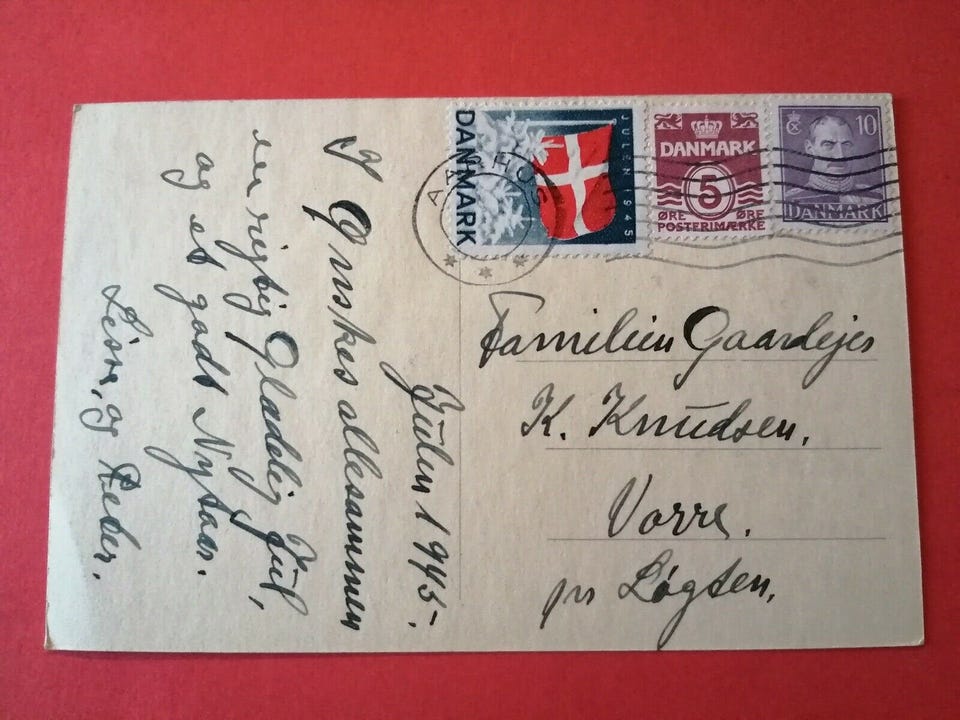 Julen 1945-.
I Ønskes allesammen
en rigtig Glædelig Jul,
og et godt Nytaar.
og Peder.
JULEN 1945
DANMARK
AARHUS
DANMARK
5
ØRE ØRE
POSTFRIMÆRKE
10
DANMARK
Familien Gaardejer
K. Knudsen,
Vorre.
pr Løgten,